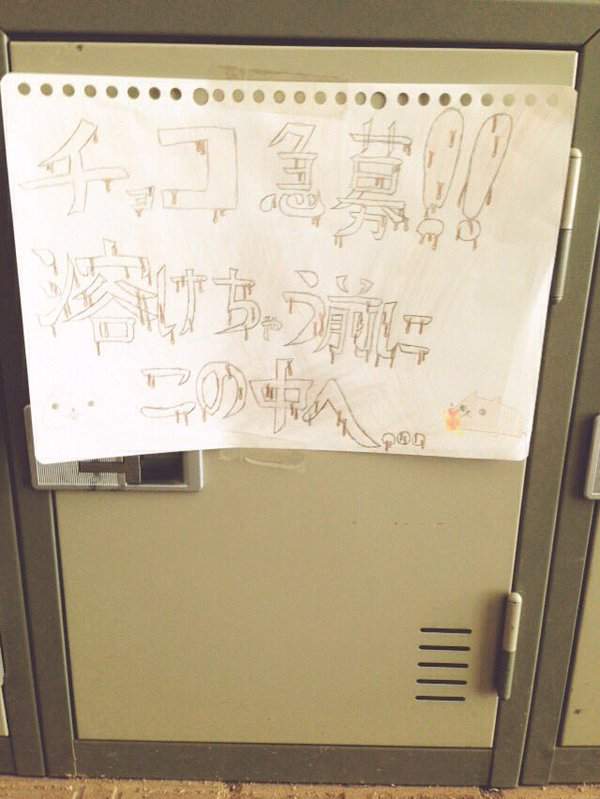 チョコ急募!!
溶けちゃう前に
この中へ...